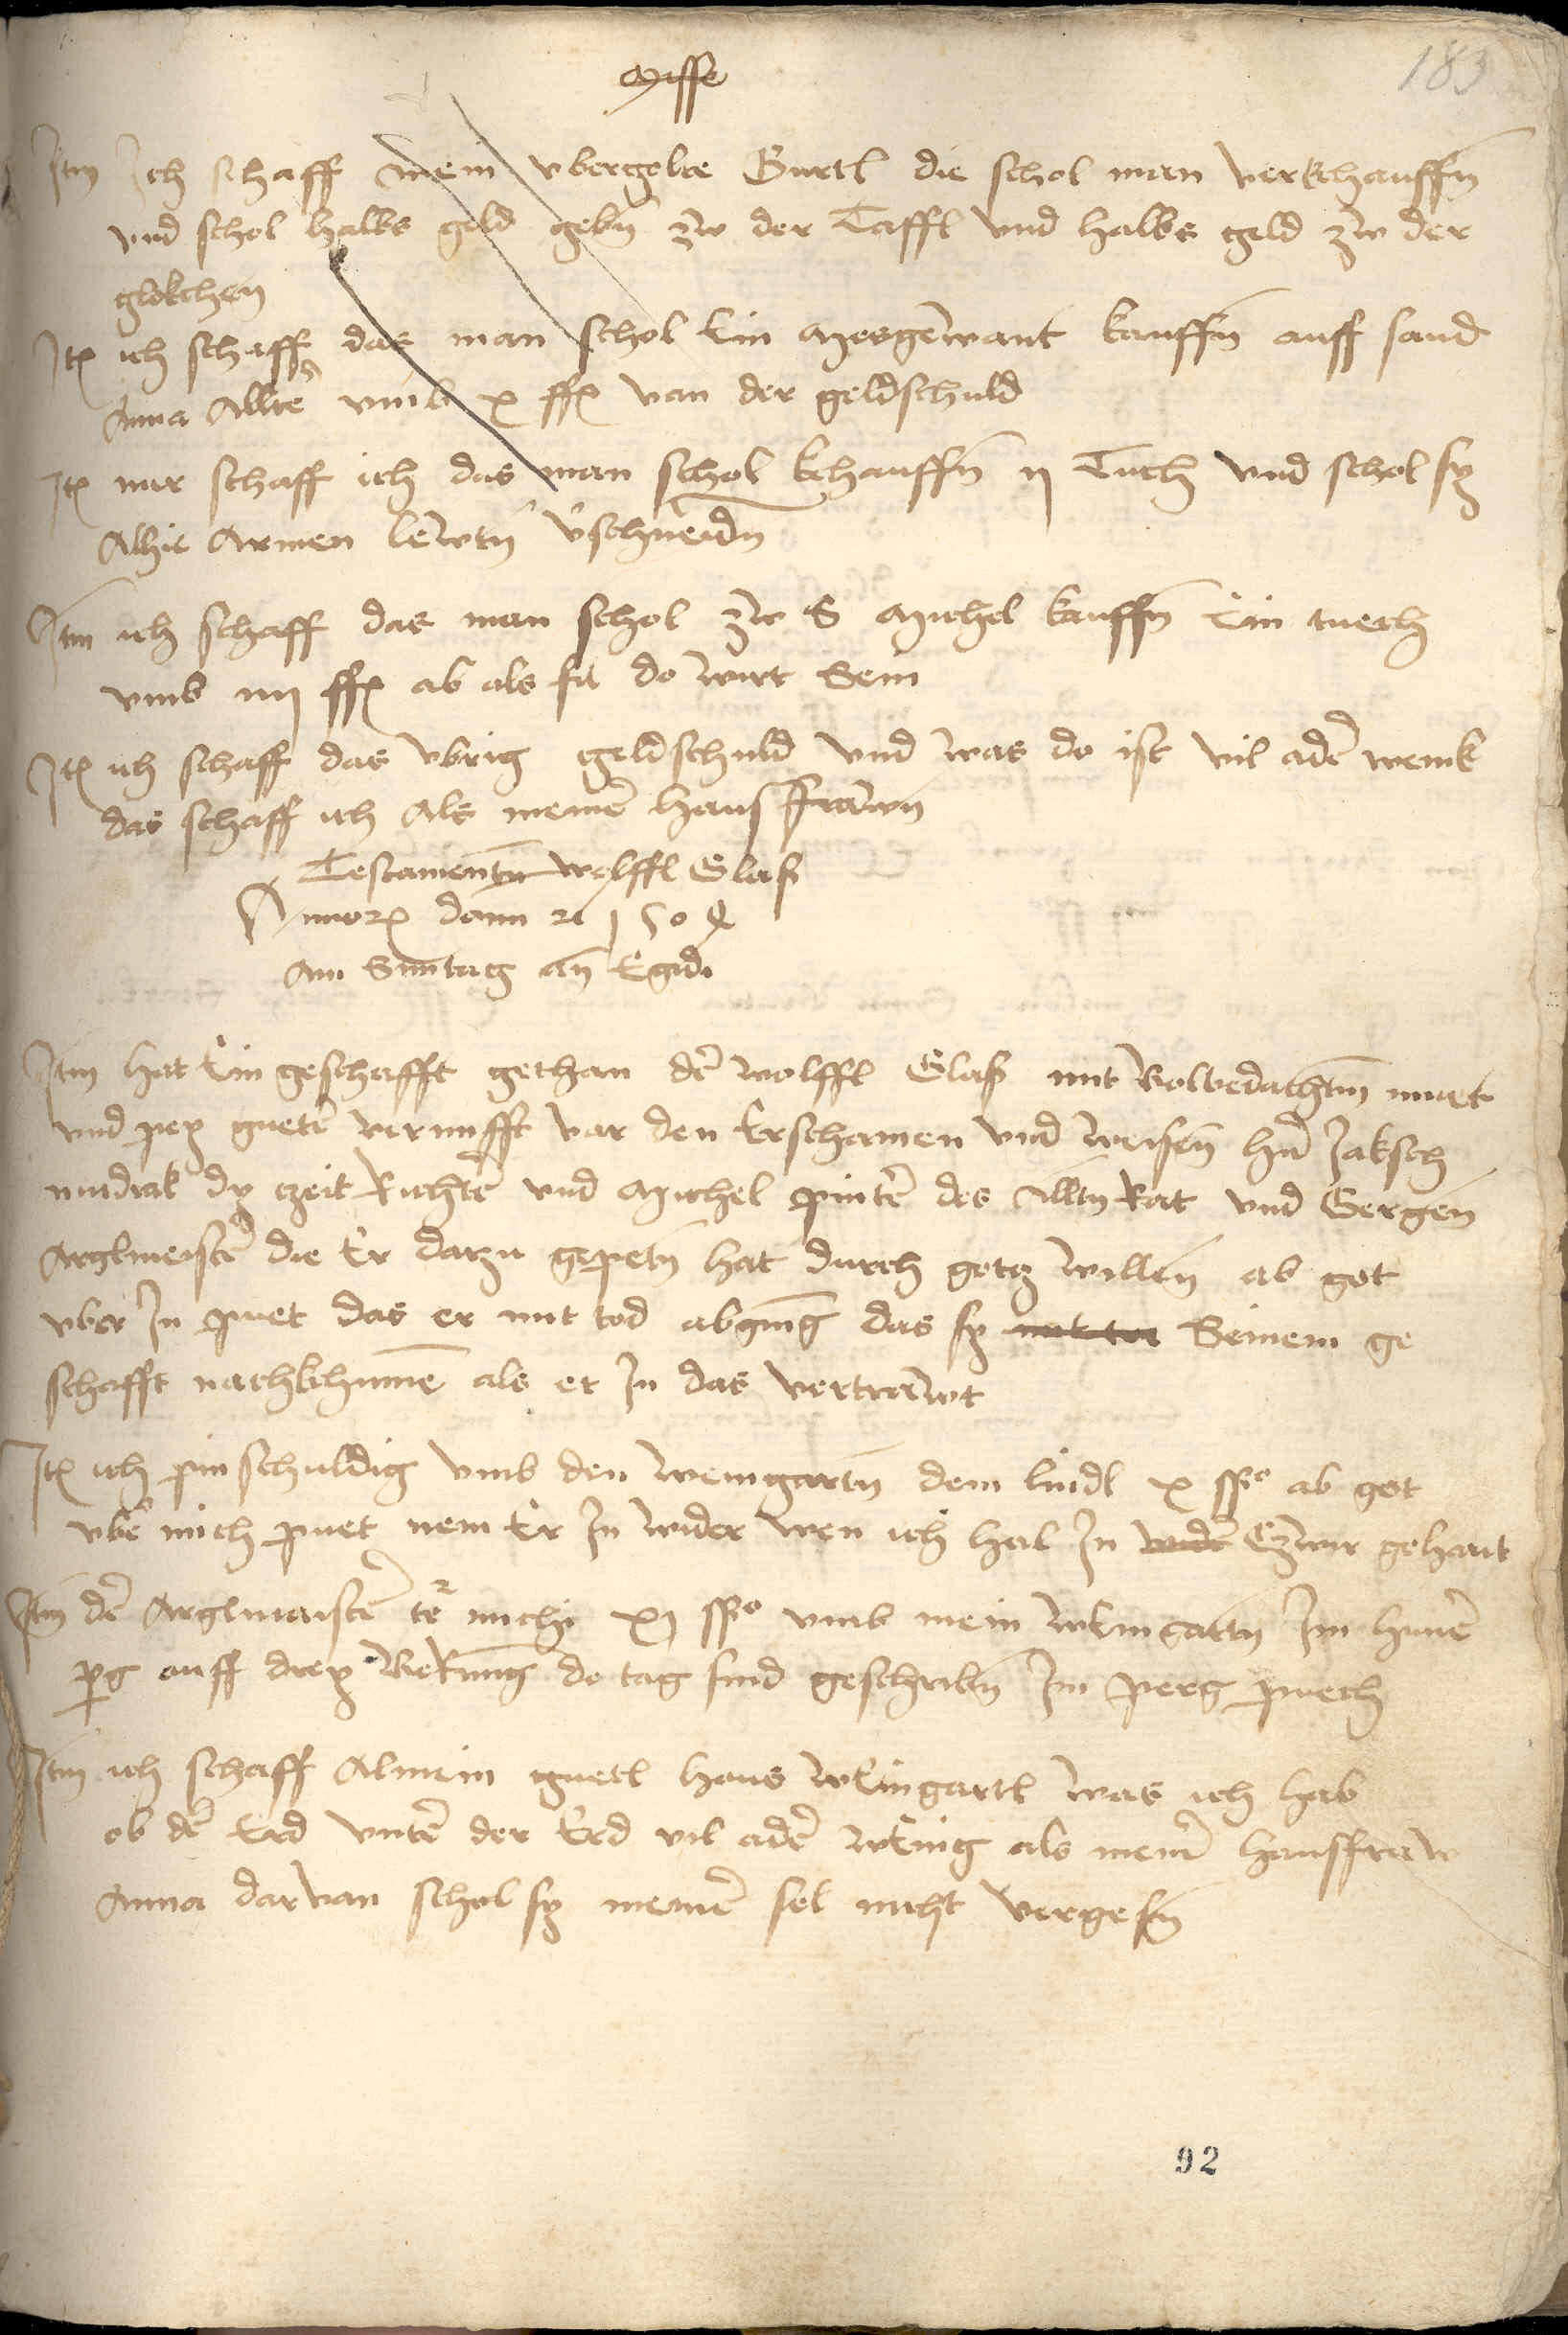 Misse
183
Itm Ich schaff mein vbergolte Gurtl die schol man verkchauffn
vnd schol halbs geld gebn zw der Taffl vnd halbs geld zw der
glokchen
Itm ich schaff das man schol Ein Mesgewant kauffn auff sand
Anna Allter vmb x ff van der geldschuld
Itm mer schaff ich das man schol kchauffn ij Tuch vnd schol sy
Alhie Armen lewtn vschneidn
Itm ich schaff das man schol zw S Michel kauffn Ein tuech
vmb iiij ff ab als fil do wirt Sein
Itm ich schaff das vbrig geldschuld vnd was do ist vil ader wenik
das schaff ich Als meiner hausfrawn
Testamentu Wolffl Glass
Annor domi 1504
Am Suntag an Egidi
Itm hat Ein geschafft gethan der Wolffl Glass mit volbedachtem muet
vnd pey gueter vernufft var den Erschamen vnd weisen hern Jaksch
mudrak dy czeit Richter vnd Michel pinter des Alltn Rat vnd Gergen
Arglmeister die Er darzu gepetn hat durch gotz willen ab got
vber In puet das er mit tod abging das sy mit tot Seinem ge
schafft nachkhumen als er In das vertrawt
Itm ich pin schuldig vmb den weingartn dem lindl x ff ab got
vber mich puet nem Er In wider wen ich hab In wider Ezwir gehait
Itm der Arglmaister tr michi xj ff vmb mein wEingartn Im hinter
perg auff drey Rekung do tag sind geschribn Im perg puech
Itm ich schaff Almein guetl haus wEingartl was ich hab
ob der Erd vnter der Erd vil ader wEnig als meiner hausfraw
Anna darvan schol sy meiner sel nicht vergesn
92